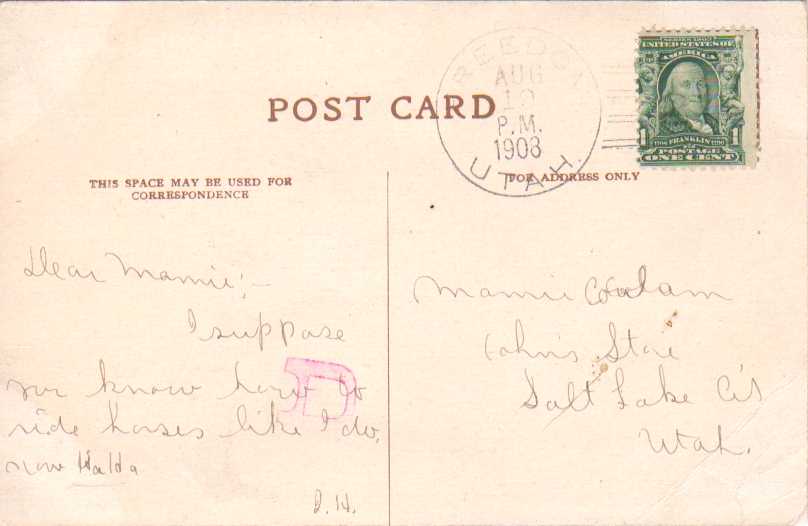 REEDER
AUG
19
P.M.
1908
UTAH.
SERIES 1902
UNITED STATES OF
AMERICA
1 1706 FRANKLIN 1790 1
POSTAGE
ONE CENT
POST CARD
THIS SPACE MAY BE USED FOR
CORRESPONDENCE
FOR ADDRESS ONLY
Dear Mamie;—
I suppose
you know how to
ride horses like I do,
now Halda
D. H.
D
Mamie
Cohn's Store
Salt Lake
Utah.